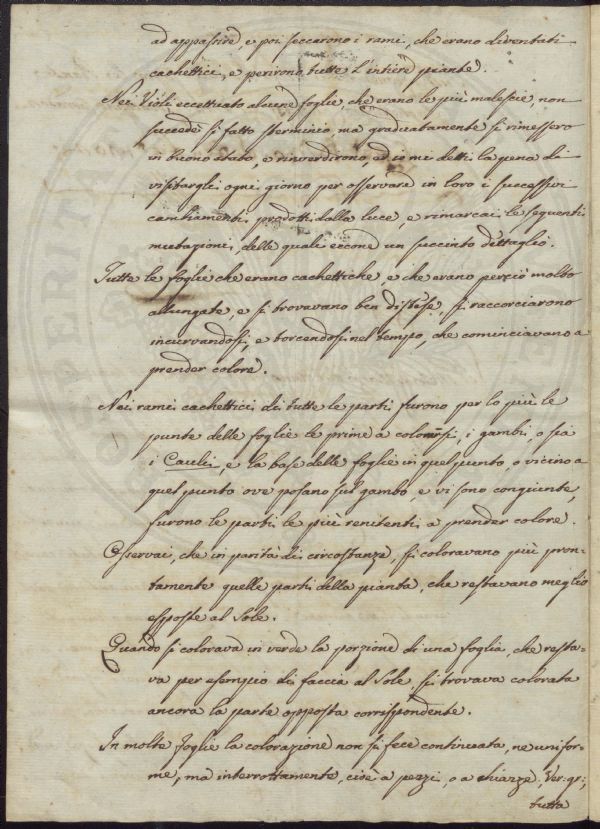 ad appassire, e poi seccarono i rami, che erano diventati
cachettici, e perirono tutte l'intiere piante.
Nei Violi eccettuato alcune foglie, che erano le più malescie, non
succedè sì fatto sterminio ma graduatamente si rimessero
in buono stato, e rinverdirono, ed io mi detti la pena di
visitargli ogni giorno per osservare in loro i successivi
cambiamenti prodotti dalla luce, e rimarcai le seguenti
mutazioni, delle quali eccone un succinto dettaglio.
Tutte le foglie che erano cachettiche, e che erano perciò molto
allungate, e si trovavano ben distese, si raccorciarono
incurvandosi, e torcendosi nel tempo, che cominciavano a
prender colore.
Nei rami cachettici di tutte le parti furono per lo più le
punte delle foglie le prime a colorirsi, i gambi, o sia
i Cauli, e la base delle foglie in quel punto, o vicino a
quel punto ove posano sul gambo, e vi sono congiunte,
furono le parti le più renitenti a prender colore.
Osservai, che in parità di circostanze, si coloravano più pron-
tamente quelle parti della pianta, che restavano meglio
esposte al Sole.
Quando si colorava in verde la porzione di una foglia, che resta-
va per esempio di faccia al Sole, si trovava colorata
ancora la parte opposta corrispondente.
In molte foglie la colorazione non si fece continuata, ne unifor-
me, ma interrottamente, cioè a pezzi, o a chiazze, Ver: gr:,
tutta